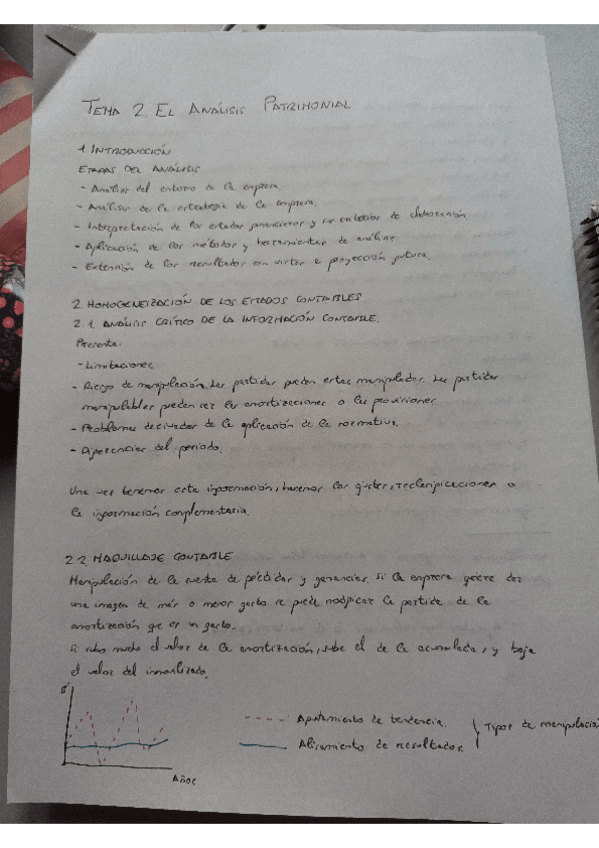 TEMA 2. EL ANÁLISIS PATRIMONIAL
1. INTRODUCCIÓN
ETAPAS DEL ANÁLISIS
- Análisis del entorno de la empresa.
- Análisis de la estrategia de la empresa.
- Interpretación de los estados financieros y su criterio de elaboración
- Aplicación de los métodos y herramientas de análisis
- Extensión de los resultados con vistas a proyección futura.
2. HOMOGENEIZACIÓN DE LOS ESTADOS CONTABLES
2.1. ANÁLISIS CRÍTICO DE LA INFORMACIÓN CONTABLE.
Presenta:
- Limitaciones
- Riesgo de manipulación. Las partidas pueden estar manipuladas. Las partidas
manipulables pueden ser las amortizaciones o las provisiones
- Problemas derivados de la aplicación de la normativa.
- Diferencias del periodo.
Una vez tenemos esta información, hacemos los ajustes, reclasificaciones o
la información complementaria.
2.2. MAQUILLAJE CONTABLE
Manipulación de la cuenta de pérdidas y ganancias. Si la empresa quiere dar
una imagen de más o menos gasto se puede modificar la partida de la
amortización que es un gasto.
Si sube mucho el valor de la amortización, sube el de la acumulada, y baja
el valor del inmovilizado.
Apuntamiento de tendencia.
Alisamiento de resultados
Tipos de manipulació
Años